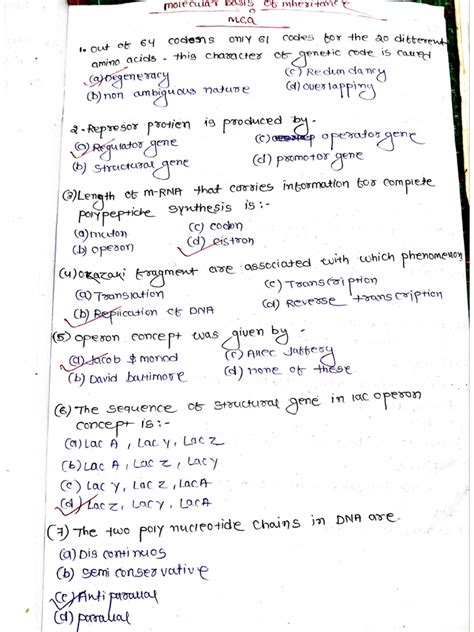 molecular Basis of inheritance
MCQ
1. out of 64 codons only 61 codes for the 20 different
amino acids. this character of genetic code is called
(a) Degeneracy (c) Redundancy
(b) non ambiguous nature (d) overlapping
2. Represor protien is produced by -
(a) Regulator gene (c) operator gene
(b) structural gene (d) promotor gene
(3) Length of m-RNA that carries information for complete
polypeptide synthesis is :-
(a) muton (c) codon
(b) operon (d) cistron
(4) okazaki fragment are associated with which phenomenon
(a) Translation (c) Transcription
(b) Replication of DNA (d) Reverse transcription
(5) operon concept was given by -
(a) Jacob & monod (c) Allec Jaffery
(b) David baltimore (d) none of these
(6) The sequence of structural gene in lac operon
concept is :-
(a) Lac A, Lac Y, Lac Z
(b) Lac A, Lac Z, Lac Y
(c) Lac Y, Lac Z, Lac A
(d) Lac Z, Lac Y, Lac A
(7) The two poly nucleotide chains in DNA are.
(a) Dis continuos
(b) semi conservative
(c) Anti parallal
(d) parallal